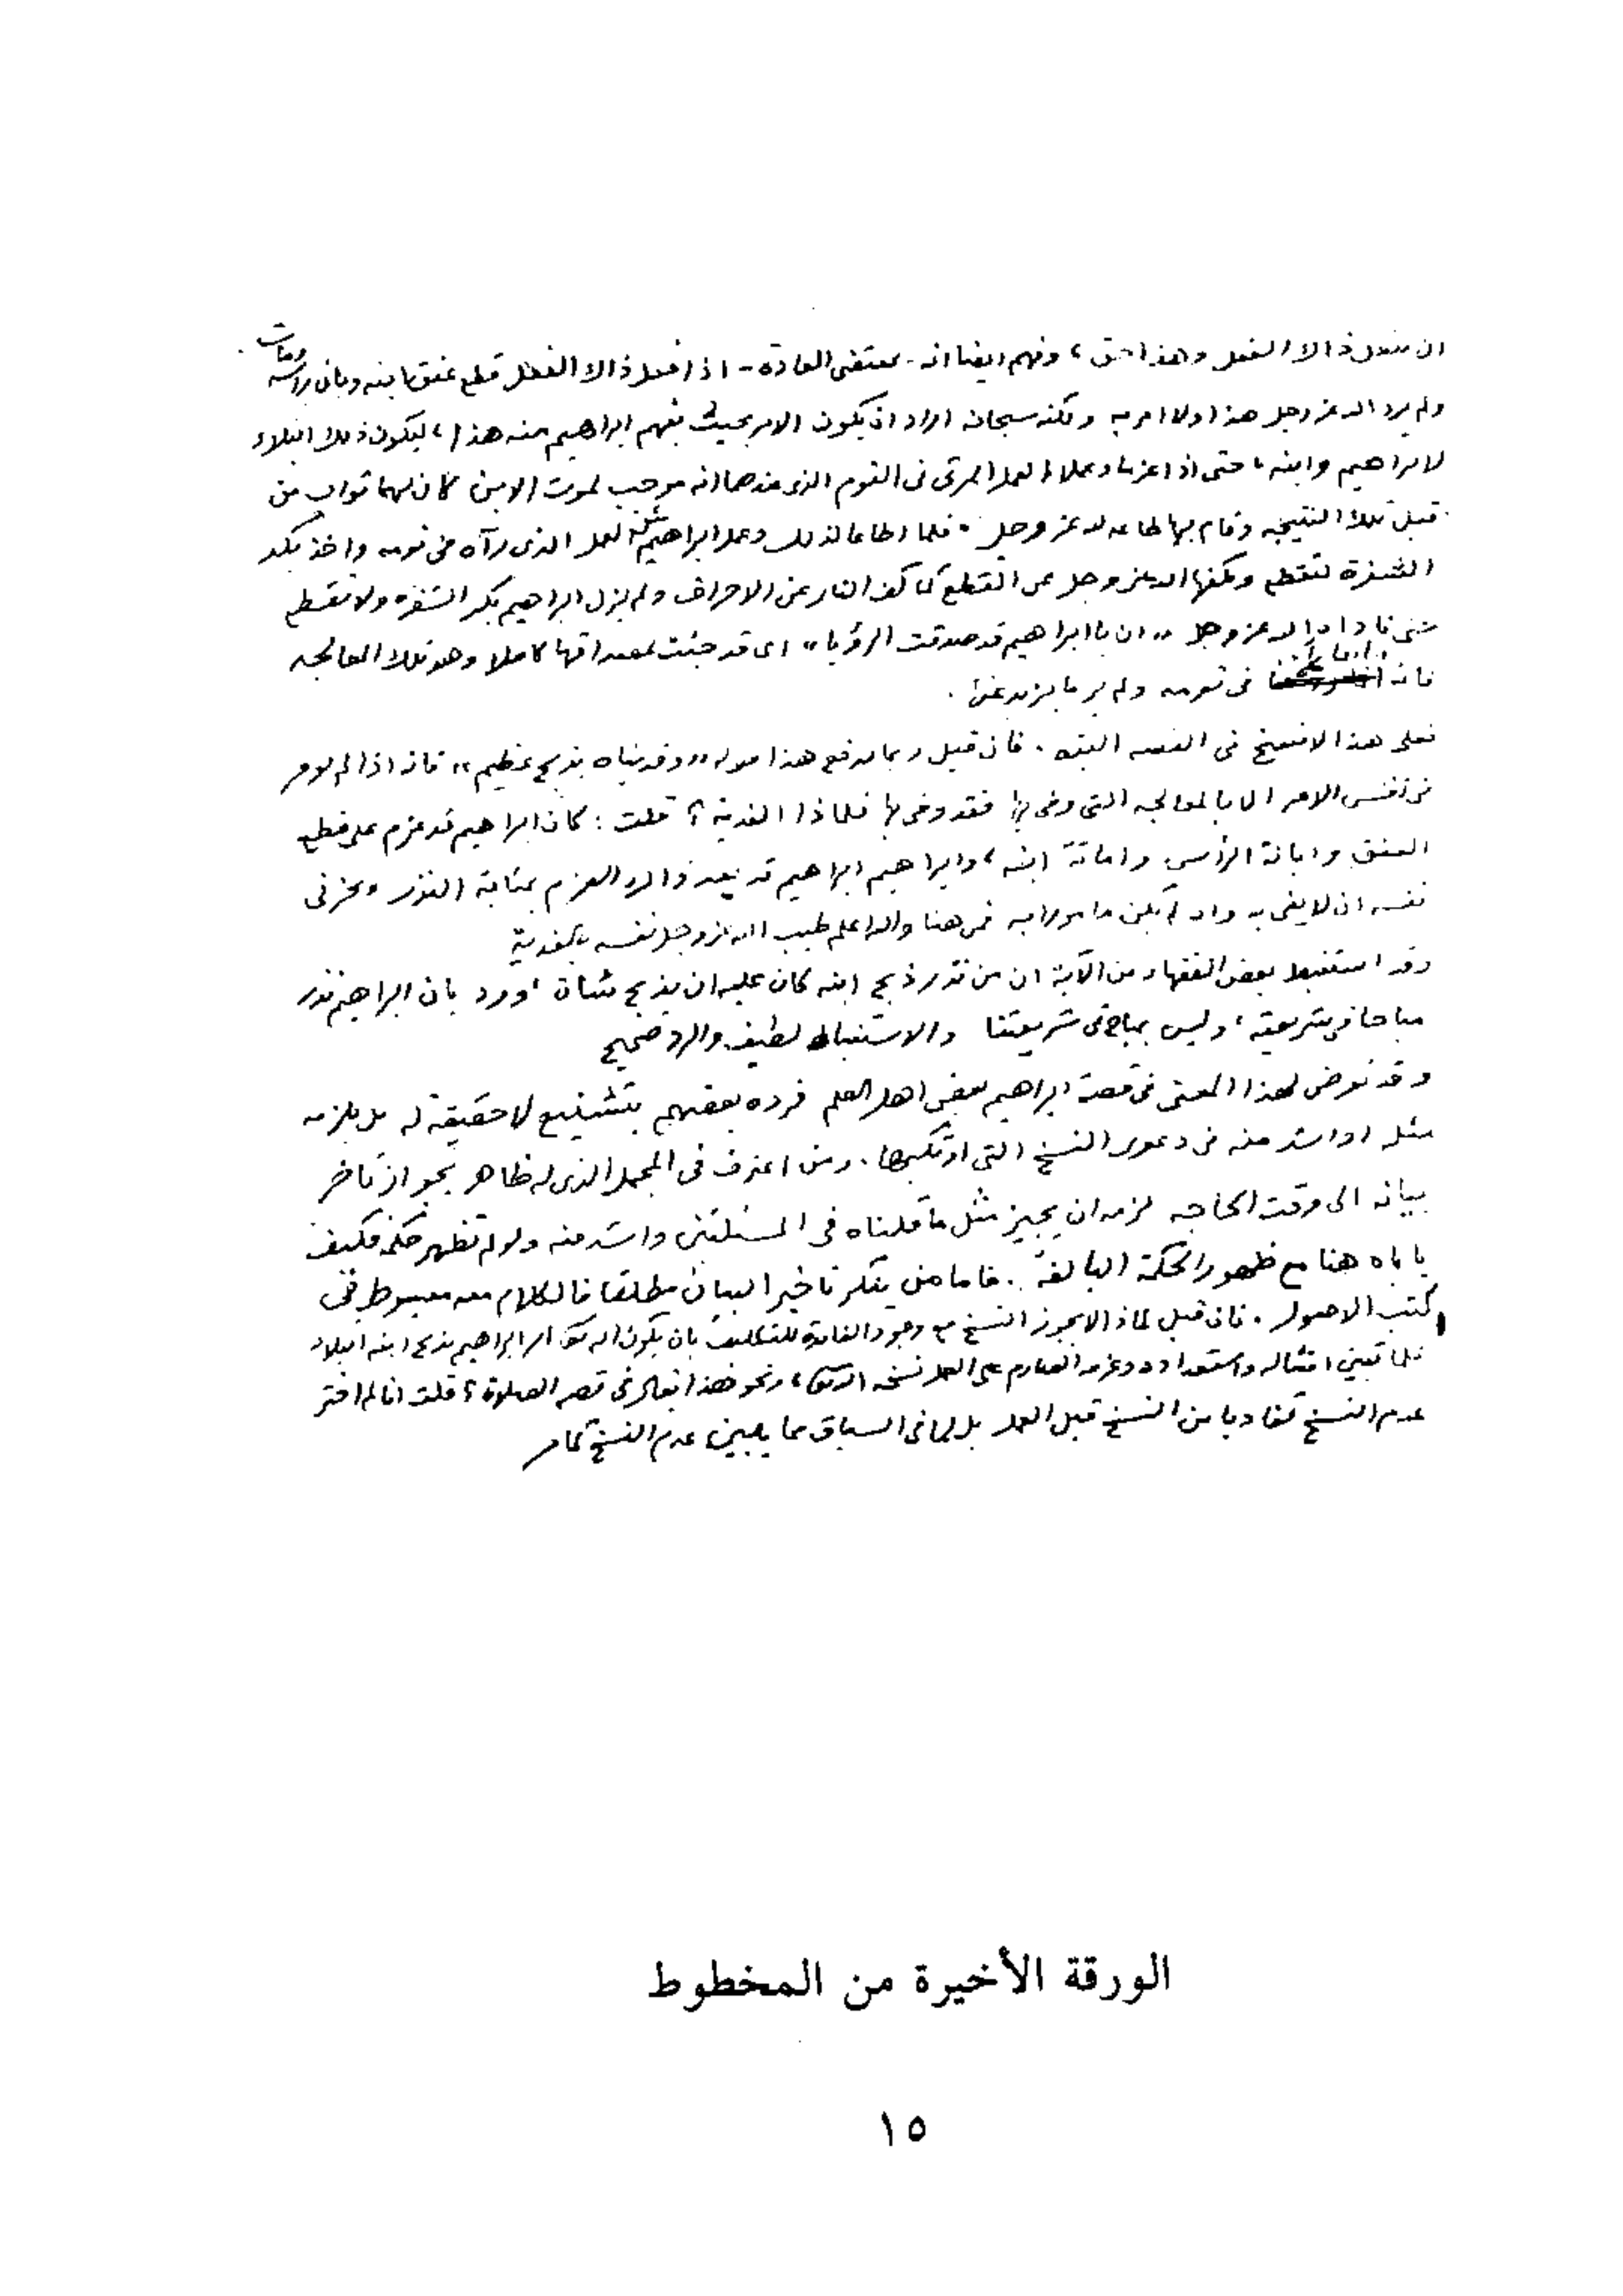 ان يفعل ذالك الفعل وهذا حق ، وفهم ايضا انه - بمقتضى العادة - اذا فعل ذالك الفعل قطع عنق ابنه وبان رأسه ومات .
ولم يرد الله عز وجل هذا ولا امر به ولكنه سبحانه اراد ان يكون الامر بحيث يفهم ابراهيم منه هذا ، ليكون ذلك ابتلاء
لابراهيم وابنه ، حتى اذا عزما وعملا العمل المرئي في النوم الذي عندهما انه موجب لموت الابن كان لهما ثواب من
قبل تلك النتيجه وقام بها طاعه لله عز وجل . فلما اطاعا لذلك وعمل ابراهيم مثل العمل الذي رآه في نومه واخذ يكد
الشفرة لتقطع ويكفها الله عز وجل عن القطع كما كف النار عن الاحراق ولم يزل ابراهيم يكد الشفره ولا تقطع
حتى ناداه الله عز وجل " ان يا ابراهيم قد صدقت الرؤيا " اي قد جئت بمصداقها كاملا وهو تلك المعالجه
فانه في نومه ولم ير ما يزيد عنها .
فعلى هذا لا نسخ في القصه البته . فان قيل ربما يدفع هذا قوله " وفديناه بذبح عظيم " فانه اذا لم يؤمر
في نفس الامر الا بالمعالجه التي وفى بها فقد وفى بها فلماذا الفدية ؟ قلت : كان ابراهيم قد عزم على قطع
العنق وابانة الرأس واماتة ابنه ، وابراهيم ابراهيم قد يعد ذالك العزم بمثابة النذر ويحز في
نفسه ان لا يفي به وان لم يكن مامورا به فمن هنا والله اعلم طيب الله عز وجل نفسه بالفدية
وقد استنبط بعض الفقهاء من الآية ان من نذر ذبح ابنه كان عليه ان يذبح شاة ، ورد بان ابراهيم نذر
مباحا في شريعته ، وليس بمباح في شريعتنا والاستنباط لطيف والرد صحيح
وقد تعرض لهذا المعنى في قصة ابراهيم بعض اهل العلم فرده بعضهم بتشنيع لا حقيقة له بل يلزمه
مثله او اشد منه في دعوى النسخ التي ارتكبها . ومن اعترف في المجمل الذي له ظاهر بجواز تاخر
بيانه الى وقت الحاجه لزمه ان يجيز مثل ما قلناه في المسئلتين واشد منه ولو لم تظهر حكمه فكيف
ياباه هنا مع ظهور الحكمة البالغة . فاما من ينكر تاخير البيان مطلقا فالكلام معه مبسوط في
كتب الاصول . فان قيل لماذا لا يجوز النسخ مع وجود الفائدة للتكليف بان يكون الله تعالى امر ابراهيم بذبح ابنه ابتلاء
فلما تبين امتثاله واستعداده وعزمه الصارم على العمل نسخه الله تعالى ، ونحو هذا يقال في قصر الصلاة ؟ قلت انا لم اختر
عدم النسخ تفاديا من النسخ قبل العمل بل لما في السياق مما يبين عدم النسخ كما مر
الورقة الأخيرة من المخطوط
١٥